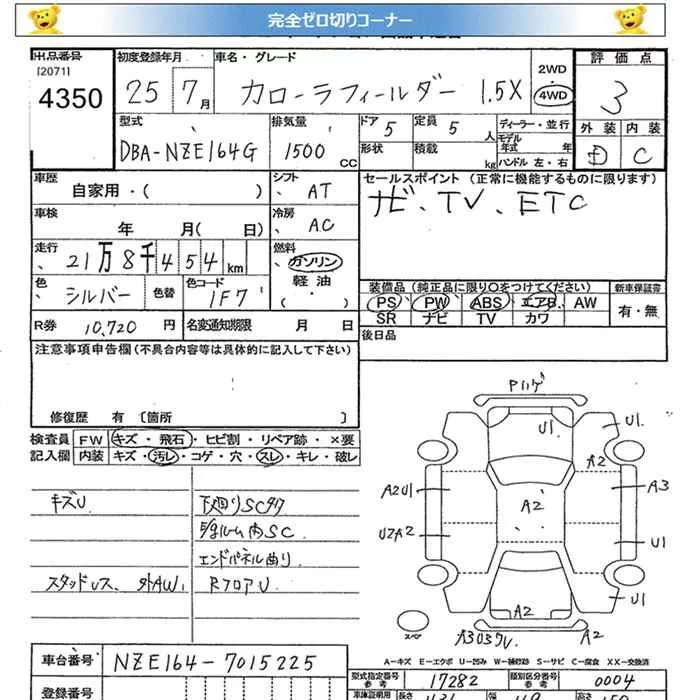 完全ゼロ切りコーナー
出品番号 初度登録年月 車名・グレード 2WD 4WD 評価点
[2071] 4350 25 7月 カローラフィールダー 1.5X 3
型式 排気量 ドア 5 定員 5人 ディーラー・並行 外装 内装
DBA-NZE164G 1500 CC 形状 積載 kg モデル年式 年 ハンドル 左・右 D C
車歴 自家用・( ) シフト AT セールスポイント (正常に機能するものに限ります)
車検 年 月( 日) 冷房 AC ナビ、TV、ETC
走行 21万8千454km 燃料 ガソリン 軽油 ( ・ )
色 シルバー 色替 色コード 1F7 装備品 (純正品に限り○をつけてください) 新車保証書
PS PW ABS エアB AW 有・無
SR ナビ TV カワ
R券 10,720 円 名変通知期限 月 日 後日品
注意事項申告欄(不具合内容等は具体的に記入して下さい)
修復歴 有 〔箇所 〕
検査員 FW キズ・飛石・ヒビ割・リペア跡・×要
記入欄 内装 キズ・汚レ・コゲ・穴・スレ・キレ・破レ
キズU 下廻りSCサク
SC
エンドパネル曲り
スタッドレス、外AW、 RフロアU
Pハゲ
U1 U1
A2
A2U1 A2 A3
U2A2 U1
U1
A2
スペ A3 A2
A-キズ E-エクボ U-凹み W-補修跡 S-サビ C-腐食 XX-交換済
車台番号 NZE164-7015225
型式指定番号 参考 17282 類別区分番号 参考 0004
登録番号 車庫証明用 長さ 幅 高さ